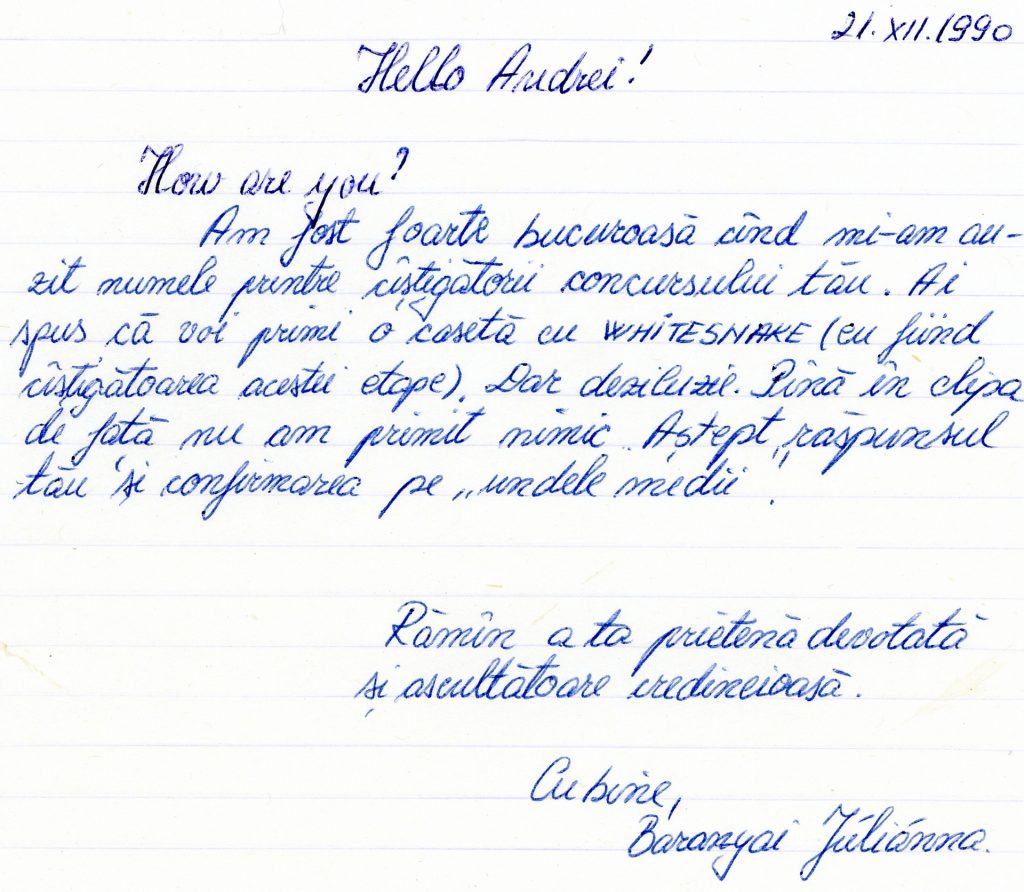 21.XII.1990
Hello Andrei!
How are you?
Am fost foarte bucuroasă cînd mi-am au-
zit numele printre cîștigătorii concursului tău. Ai
spus că voi primi o casetă cu WHITESNAKE (eu fiind
cîștigătoarea acestei etape). Dar deziluzie. Pînă în clipa
de față nu am primit nimic. Aștept răspunsul
tău și confirmarea pe „undele medii".
Rămîn a ta prietenă devotată
și ascultătoare credincioasă.
Cu bine,
Baranyai Júliánna.